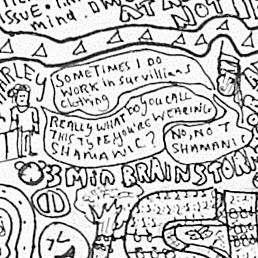 ISSUE.
mind.
AT
NOT I
ARLEY
SOMETIMES I DO
WORK IN Survillians
clothing
REALLY WHAT DO YOU CALL
THIS TYPE YOU'RE WEARING,
SHAMAWIC?
NO, NOT
SHAMANI
3 MIN BRAINSTOR